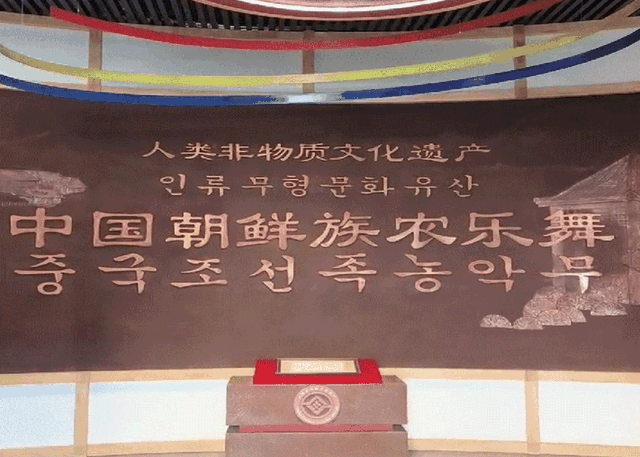 人类非物质文化遗产
인류무형문화유산
中国朝鲜族农乐舞
중국조선족농악무